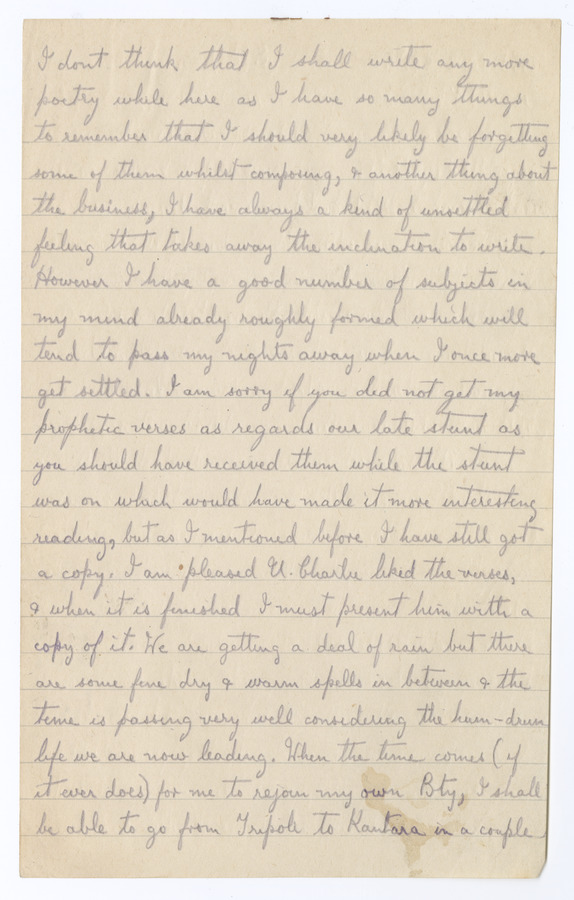 I dont think that I shall write any more
poetry while here as I have so many things
to remember that I should very likely be forgetting
some of them whilst composing, & another thing about
the business, I have always a kind of unsettled
feeling that takes away the inclination to write.
However I have a good number of subjects in
my mind already roughly formed which will
tend to pass my nights away when I once more
get settled. I am sorry if you did not get my
prophetic verses as regards our late stunt as
you should have received them while the stunt
was on which would have made it more interesting
reading, but as I mentioned before I have still got
a copy. I am pleased U. Charlie liked the verses,
& when it is finished I must present him with a
copy of it. We are getting a deal of rain but there
are some fine dry & warm spells in between & the
time is passing very well considering the hum-drum
life we are now leading. When the time comes (if
it ever does) for me to rejoin my own Bty, I shall
be able to go from Tripoli to Kantara in a couple